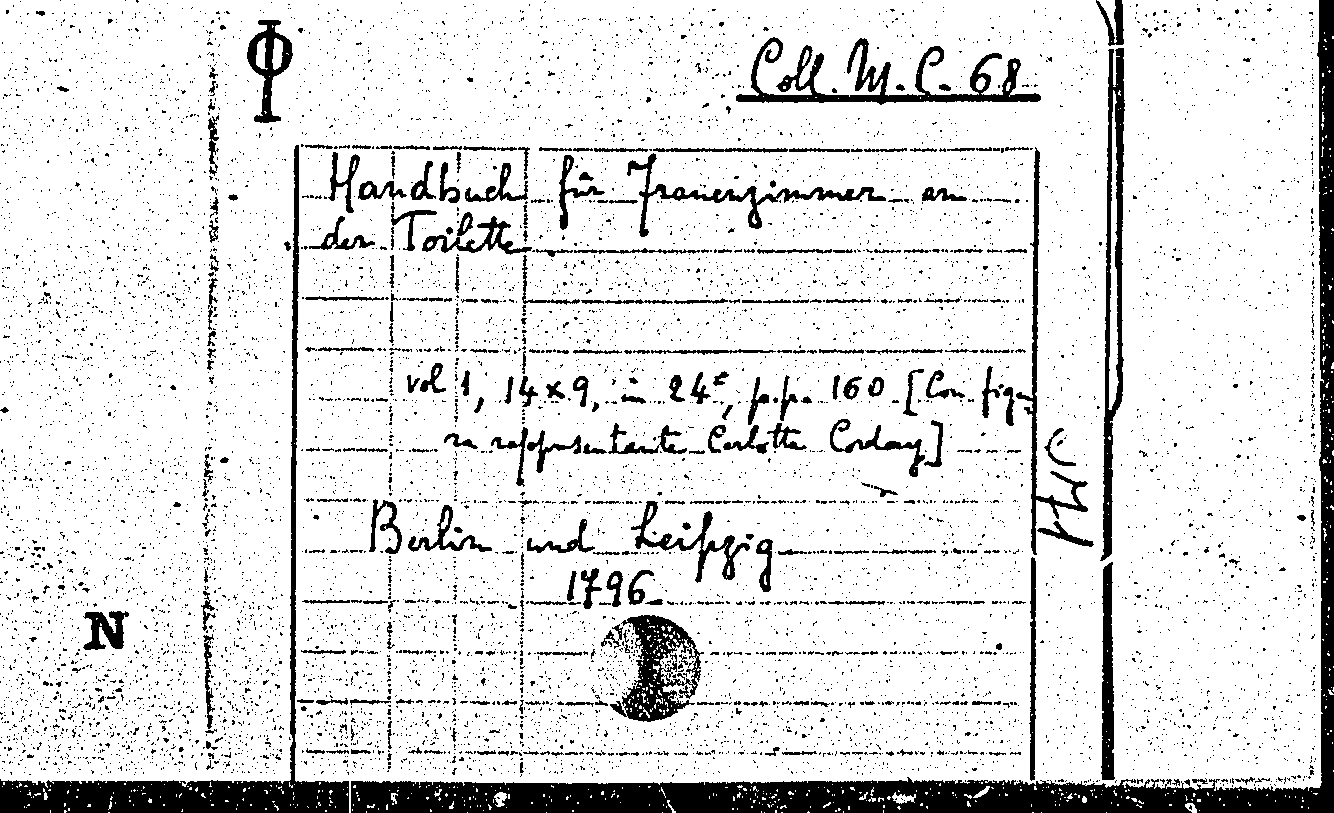 Φ
Coll. M. C. 68
Handbuch für Frauenzimmer an
der Toilette
vol 1, 14 x 9, in 24º, p.p. 160 [Con figu=
ra rappresentante Carlotta Corday]
Berlin und Leipzig
1796
N